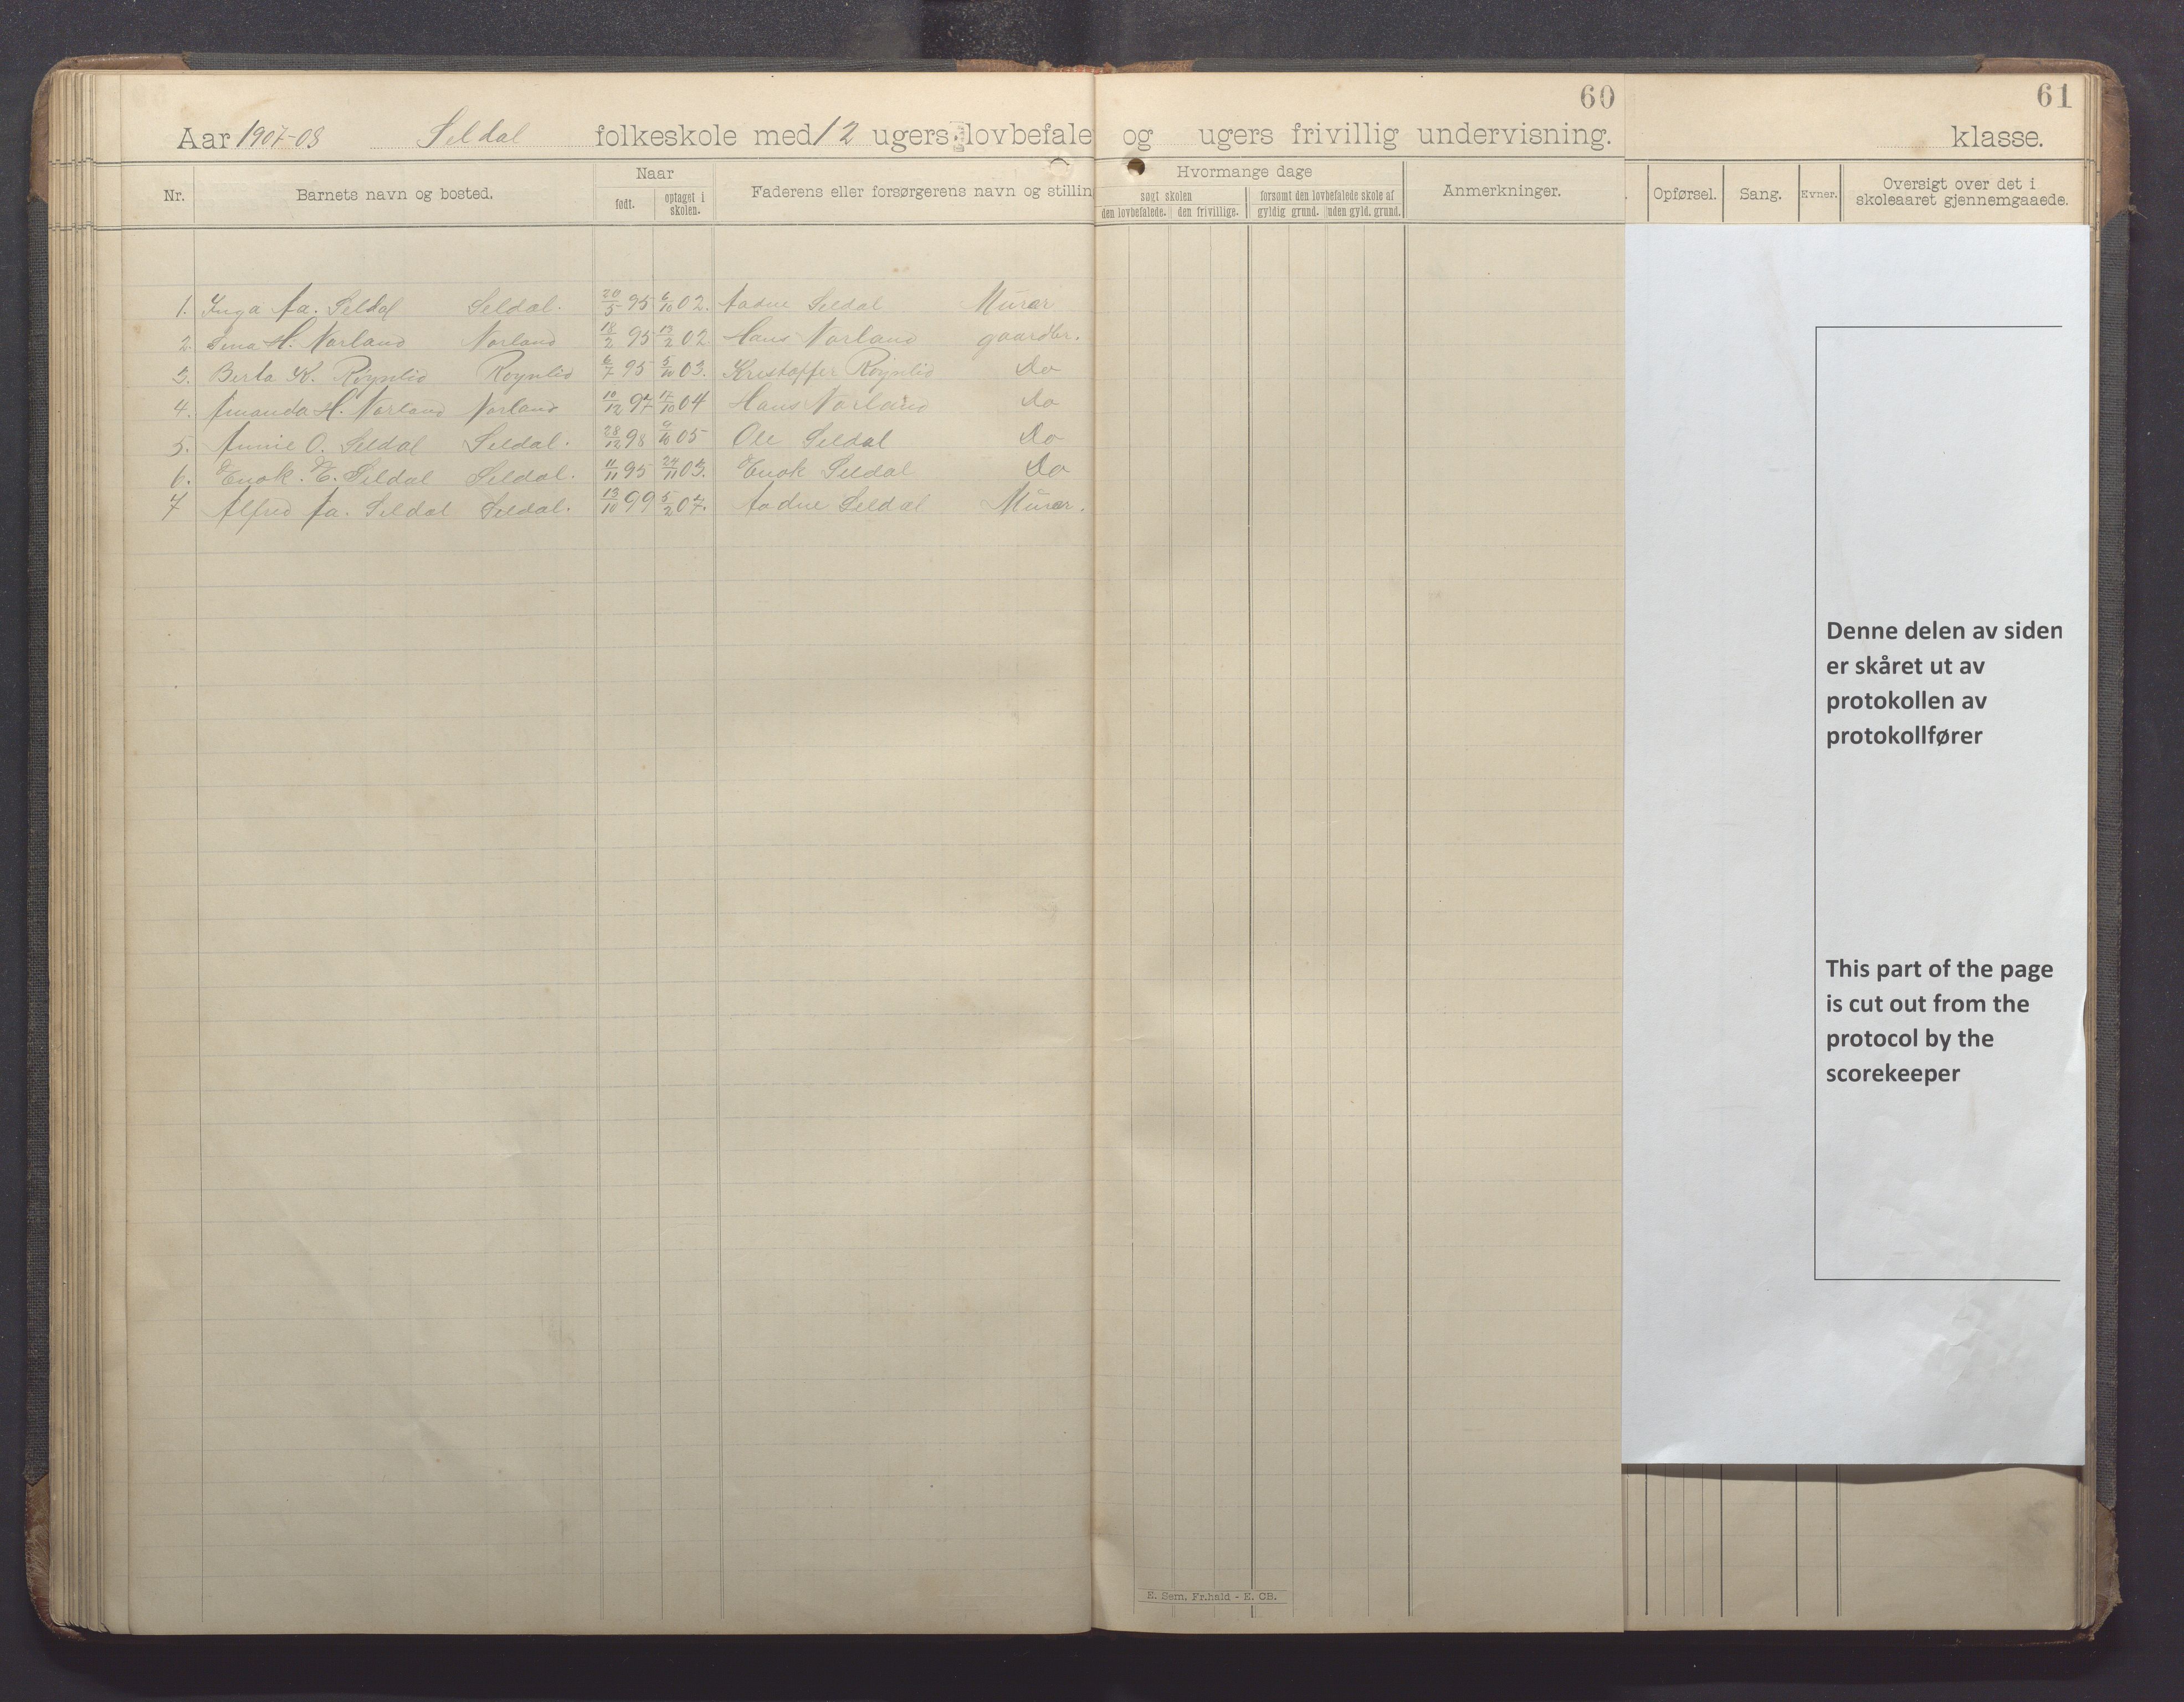 60
61
Aar 1907-08 Seldal folkeskole med 12 ugers lovbefale og ugers frivillig undervisning. klasse.
Nr. Barnets navn og bosted. Naar Faderens eller forsørgerens navn og stillin Hvormange dage Anmerkninger. Opførsel. Sang. Evner. Oversigt over det i skoleaaret gjennemgaaede.
født. optaget i skolen. søgt skolen forsømt den lovbefalede skole af
den lovbefalede. den frivillige. gyldig grund. uden gyld. grund.
1. Inga Aa. Seldal Seldal. 20/5 95 6/10 02. Aadne Seldal Murer
2. H. Norland Norland 18/2 95 13/2 02. Hans Norland gaardbr.
3. Berta K. Røynlid Røynlid 6/7 95 5/10 03. Kristoffer Røynlid Do
4. Amanda H. Norland Norland 10/12 97 17/10 04 Hans Norland Do
5. Annie O. Seldal Seldal. 28/12 98 9/10 05 Ole Seldal Do
6. Enok. E. Seldal Seldal. 11/11 95 24/11 03. Enok Seldal Do
7 Alfred Aa. Seldal Seldal. 13/10 99 5/2 07. Aadne Seldal Murer.
Denne delen av siden
er skåret ut av
protokollen av
protokollfører
This part of the page
is cut out from the
protocol by the
scorekeeper
E. Sem, Fr.hald - E. CB.